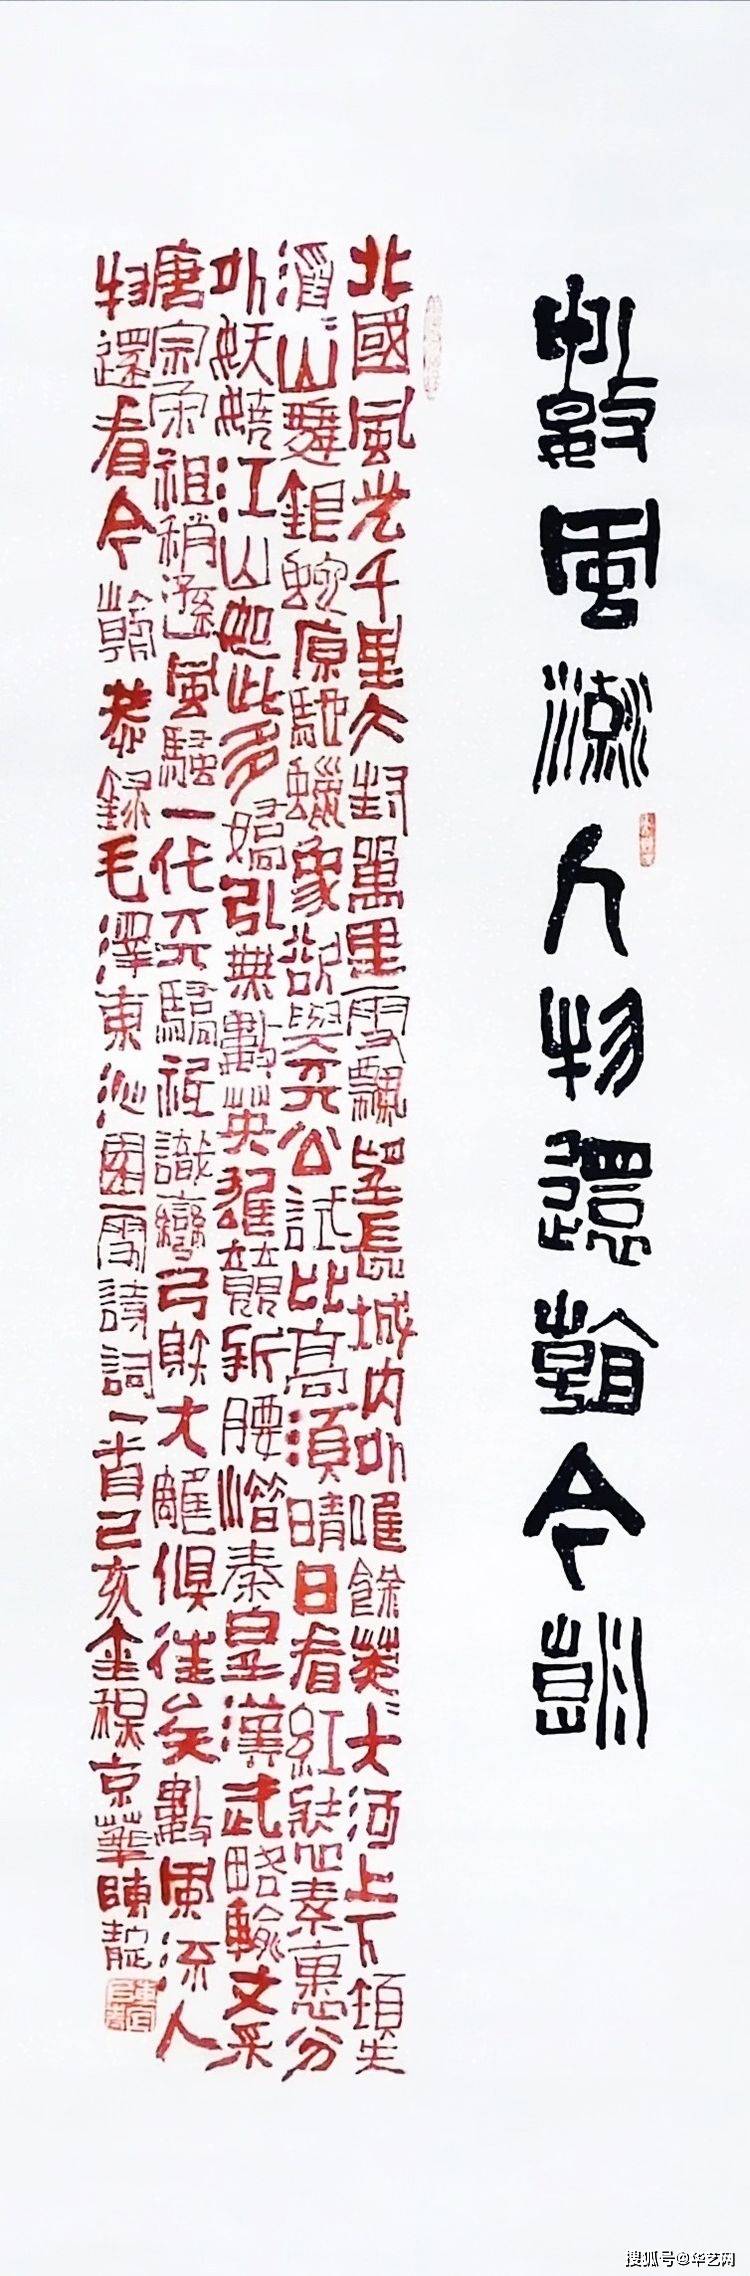 數風流人物還看今朝
北國風光千里冰封萬里雪飄望長城内外唯餘莽莽大河上下頓失
滔滔山舞銀蛇原馳蠟象欲與天公試比高須晴日看紅裝素裹分
外妖嬈江山如此多嬌引無數英雄競折腰惜秦皇漢武略輸文采
唐宗宋祖稍遜風騷一代天驕祗識彎弓射大雕俱往矣數風流人
物還看今朝恭錄毛澤東沁園雪詩詞一首己亥金秋京華陳
搜狐号@华艺网